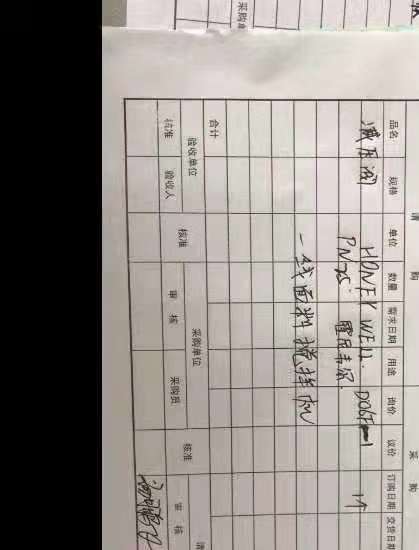 请 购
采 购
品名 规格 单位 数量 需求日期 用途 询价 议价 订购日期 交货日期
减压阀 HONEYWELL. D06F 1个
PN25 霍尼韦尔.
一线面料搅拌机
合计
验收单位 采购单位
核准 验收人 核准 审 核 采购员 核准 审 核
采购